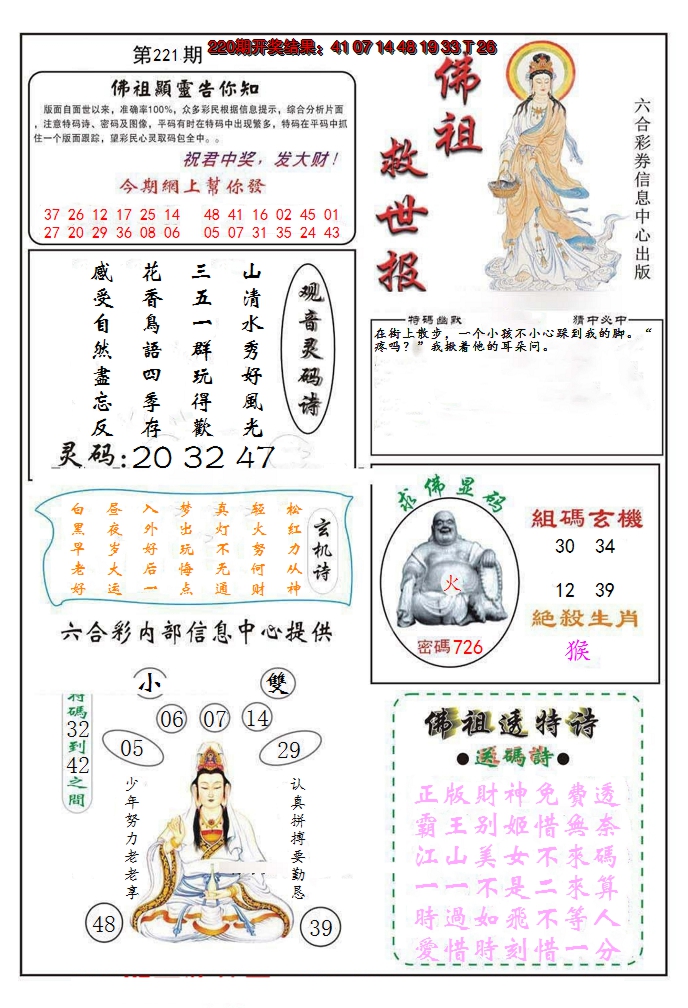 第221期
220期开奖结果：41 07 14 48 19 33 T 26
佛祖顯靈告你知
版面自面世以来，准确率100%，众多彩民根据信息提示，综合分析片面
，注意特码诗、密码及图像，平码有时在特码中出现繁多，特码在平码中抓
住一个版面跟踪，望彩民心灵取码包全中。。
祝君中奖，发大财！
今期網上幫你發
37 26 12 17 25 14 48 41 16 02 45 01
27 20 29 36 08 06 05 07 31 35 24 43
佛祖
救世报
六合彩券信息中心出版
观音灵码诗
山清水秀好風光
三五一群玩得歡
花香鳥語四季存
感受自然盡忘反
灵码:20 32 47
特碼幽默
猜中必中
在街上散步，一个小孩不小心踩到我的脚。“
疼吗？”我揪着他的耳朵问。
玄机诗
松红力从神
轻火努何财
真灯不无通
梦出玩悔点
入外好后一
昼夜岁大运
白黑早老好
六合彩内部信息中心提供
求佛显码
火
密碼726
組碼玄機
30 34
12 39
絶殺生肖
猴
小
雙
特碼32到42之間
06
07
14
05
29
少年努力老老享
认真拼搏要勤恳
48
39
佛祖透特诗
●送碼詩●
正版財神免費透
霸王别姬惜無奈
江山美女不來碼
一一不是二來算
時過如飛不等人
愛惜時刻惜一分